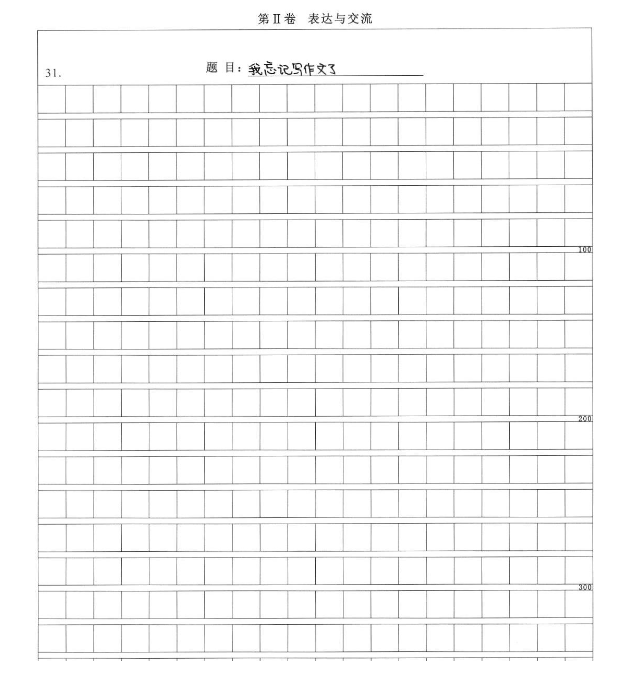 第Ⅱ卷 表达与交流
31. 题 目：我忘记写作文了
100
200
300